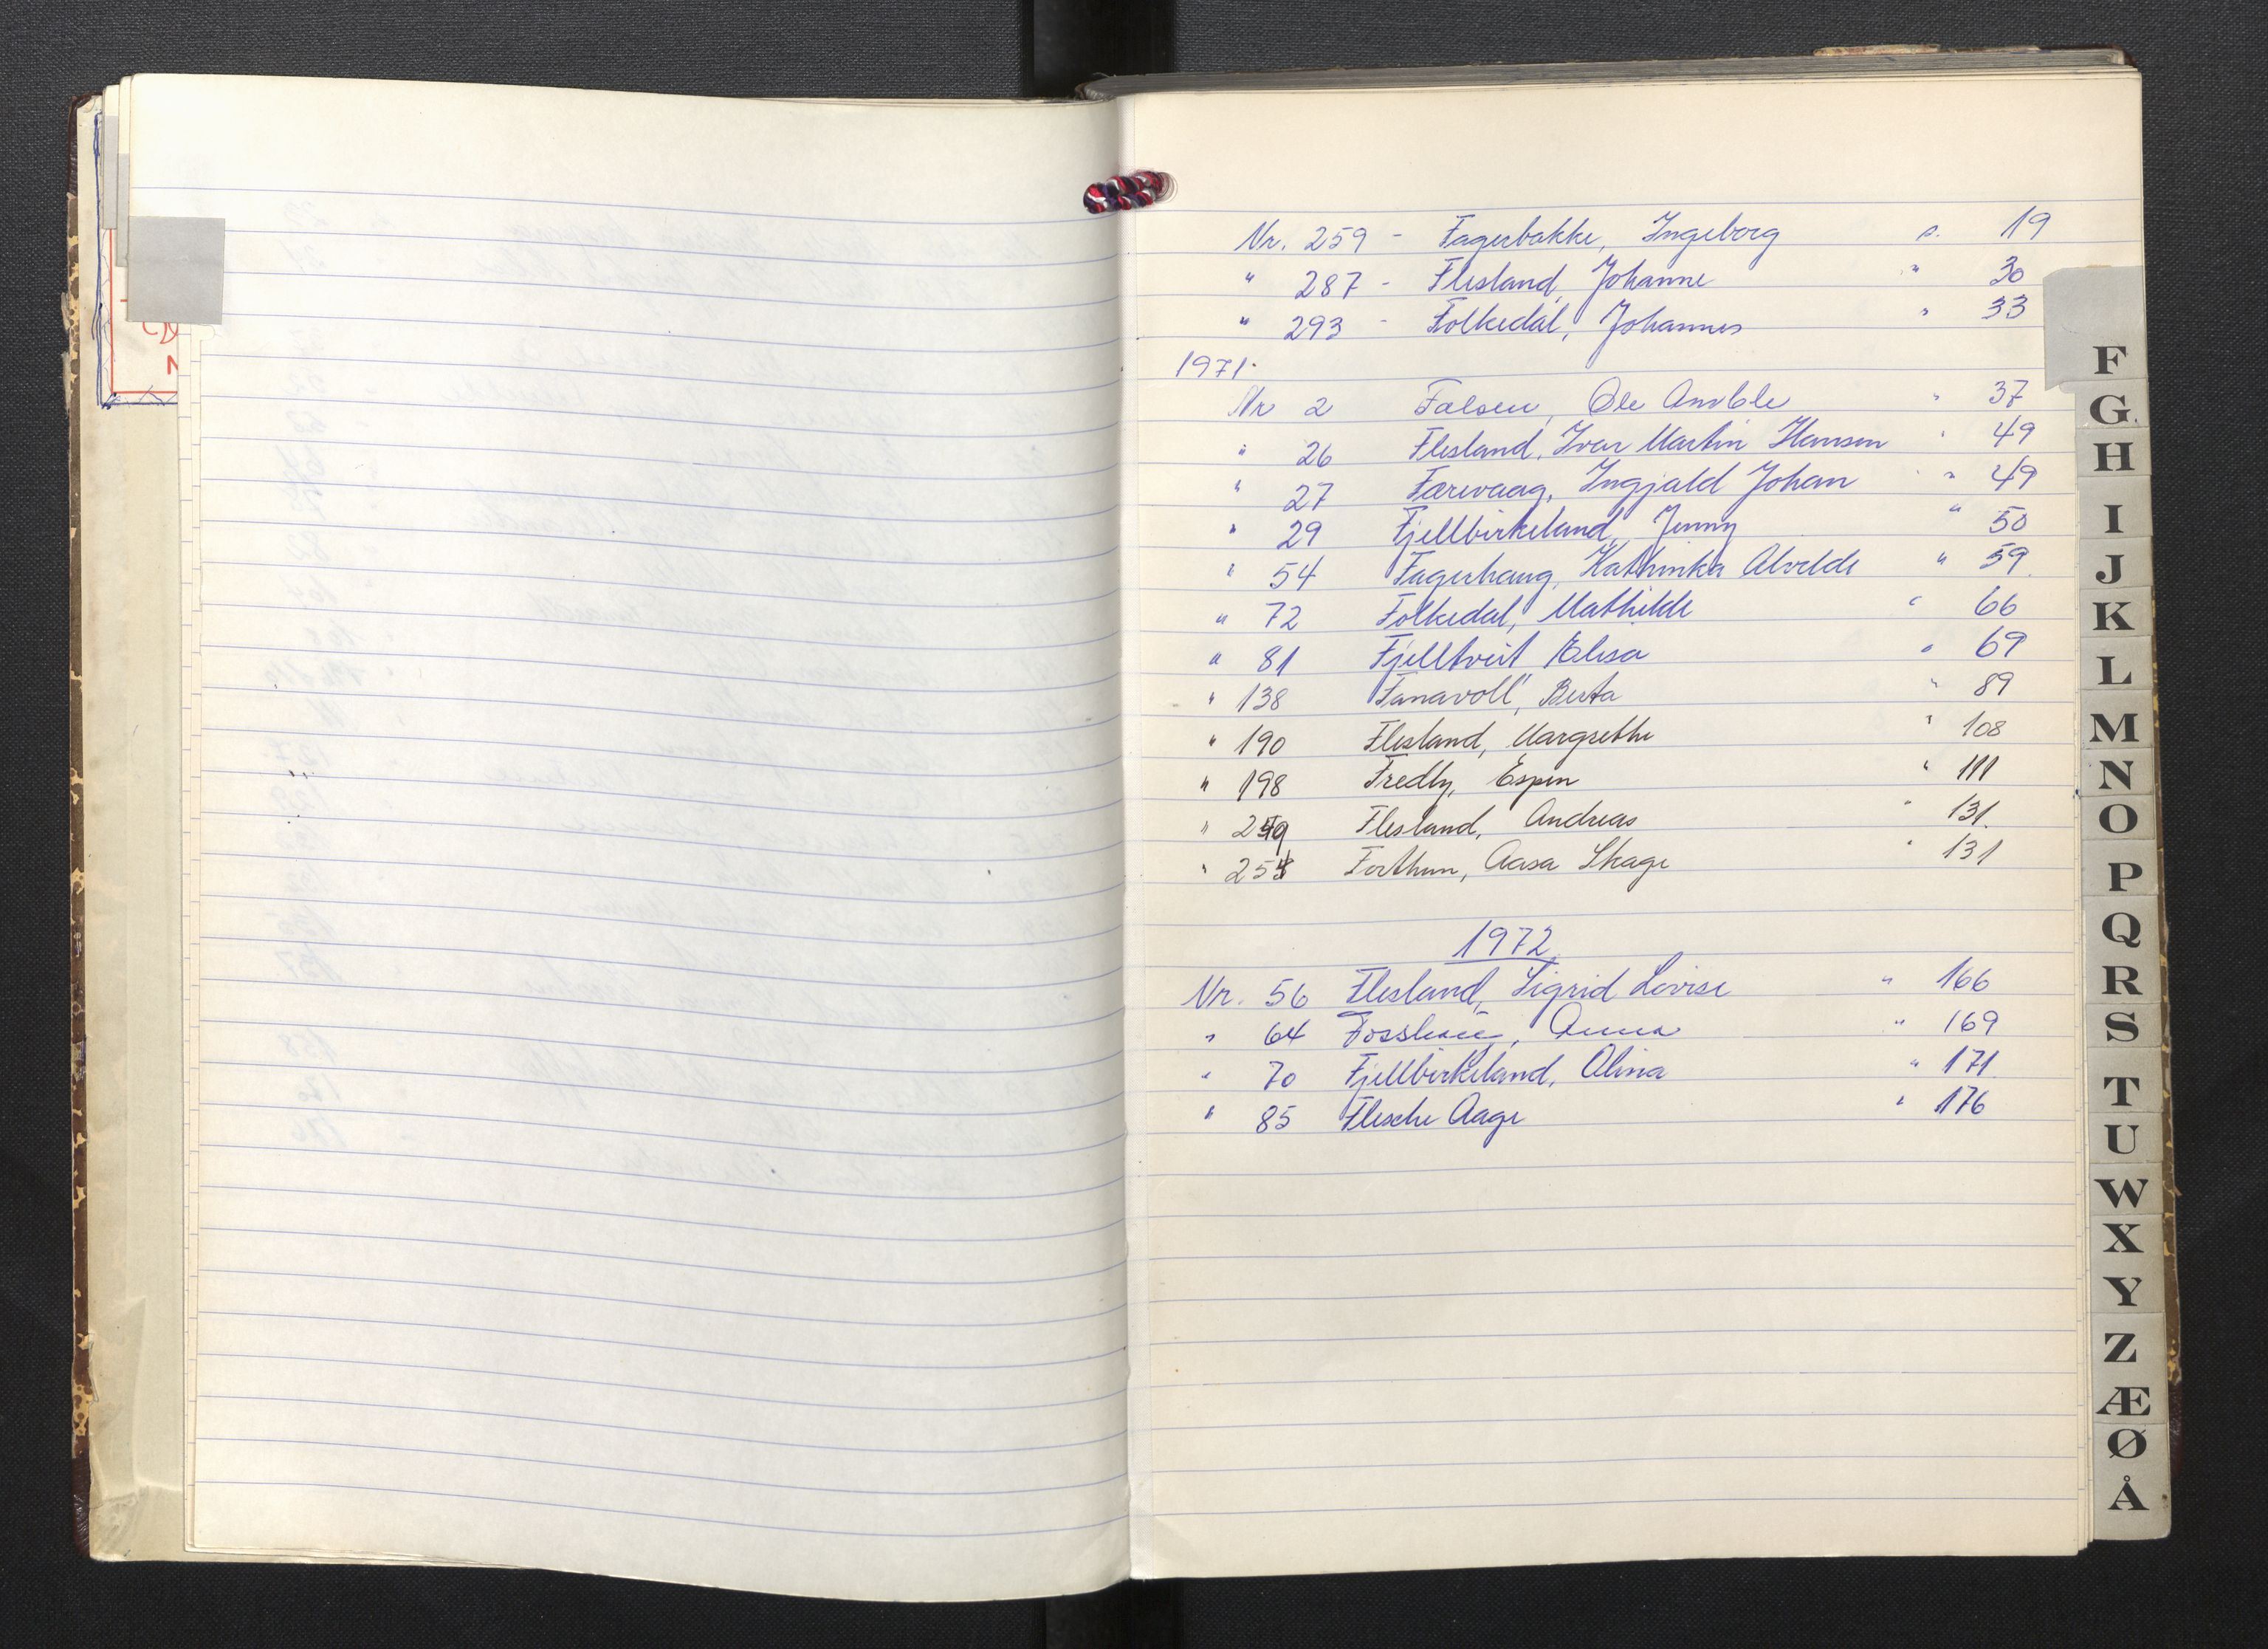 Nr. 259 - Fagerbakke, Ingeborg s. 19
" 287 - Flesland, Johanne " 30
" 293 - Folkedal, Johannes " 33
1971.
Nr 2 Falsen, Ole " 37
" 26 Flesland, Ivar Martin Hansen " 49
" 27 Færevaag, Ingjald Johan " 49
" 29 Fjellbirkeland, Jenny " 50
" 54 Fagerhaug, Kathinka Alvilde " 59
" 72 Folkedal, Mathilde " 66
" 81 Fjelltveit Elisa " 69
" 138 Fanavoll, Berta " 89
" 190 Flesland, Margrethe " 108
" 198 Fredly, Espen " 111
" Flesland, Andreas " 131
" Forthun, Aasa Skage " 131
1972
Nr. 56 Flesland, Sigrid Lovise " 166
" 64 Anna " 169
" 70 Fjellbirkeland, Olina " 171
" 85 Flesche Aage " 176
F
G
H
I
J
K
L
M
N
O
P
Q
R
S
T
U
W
X
Y
Z
Æ
Ø
Å